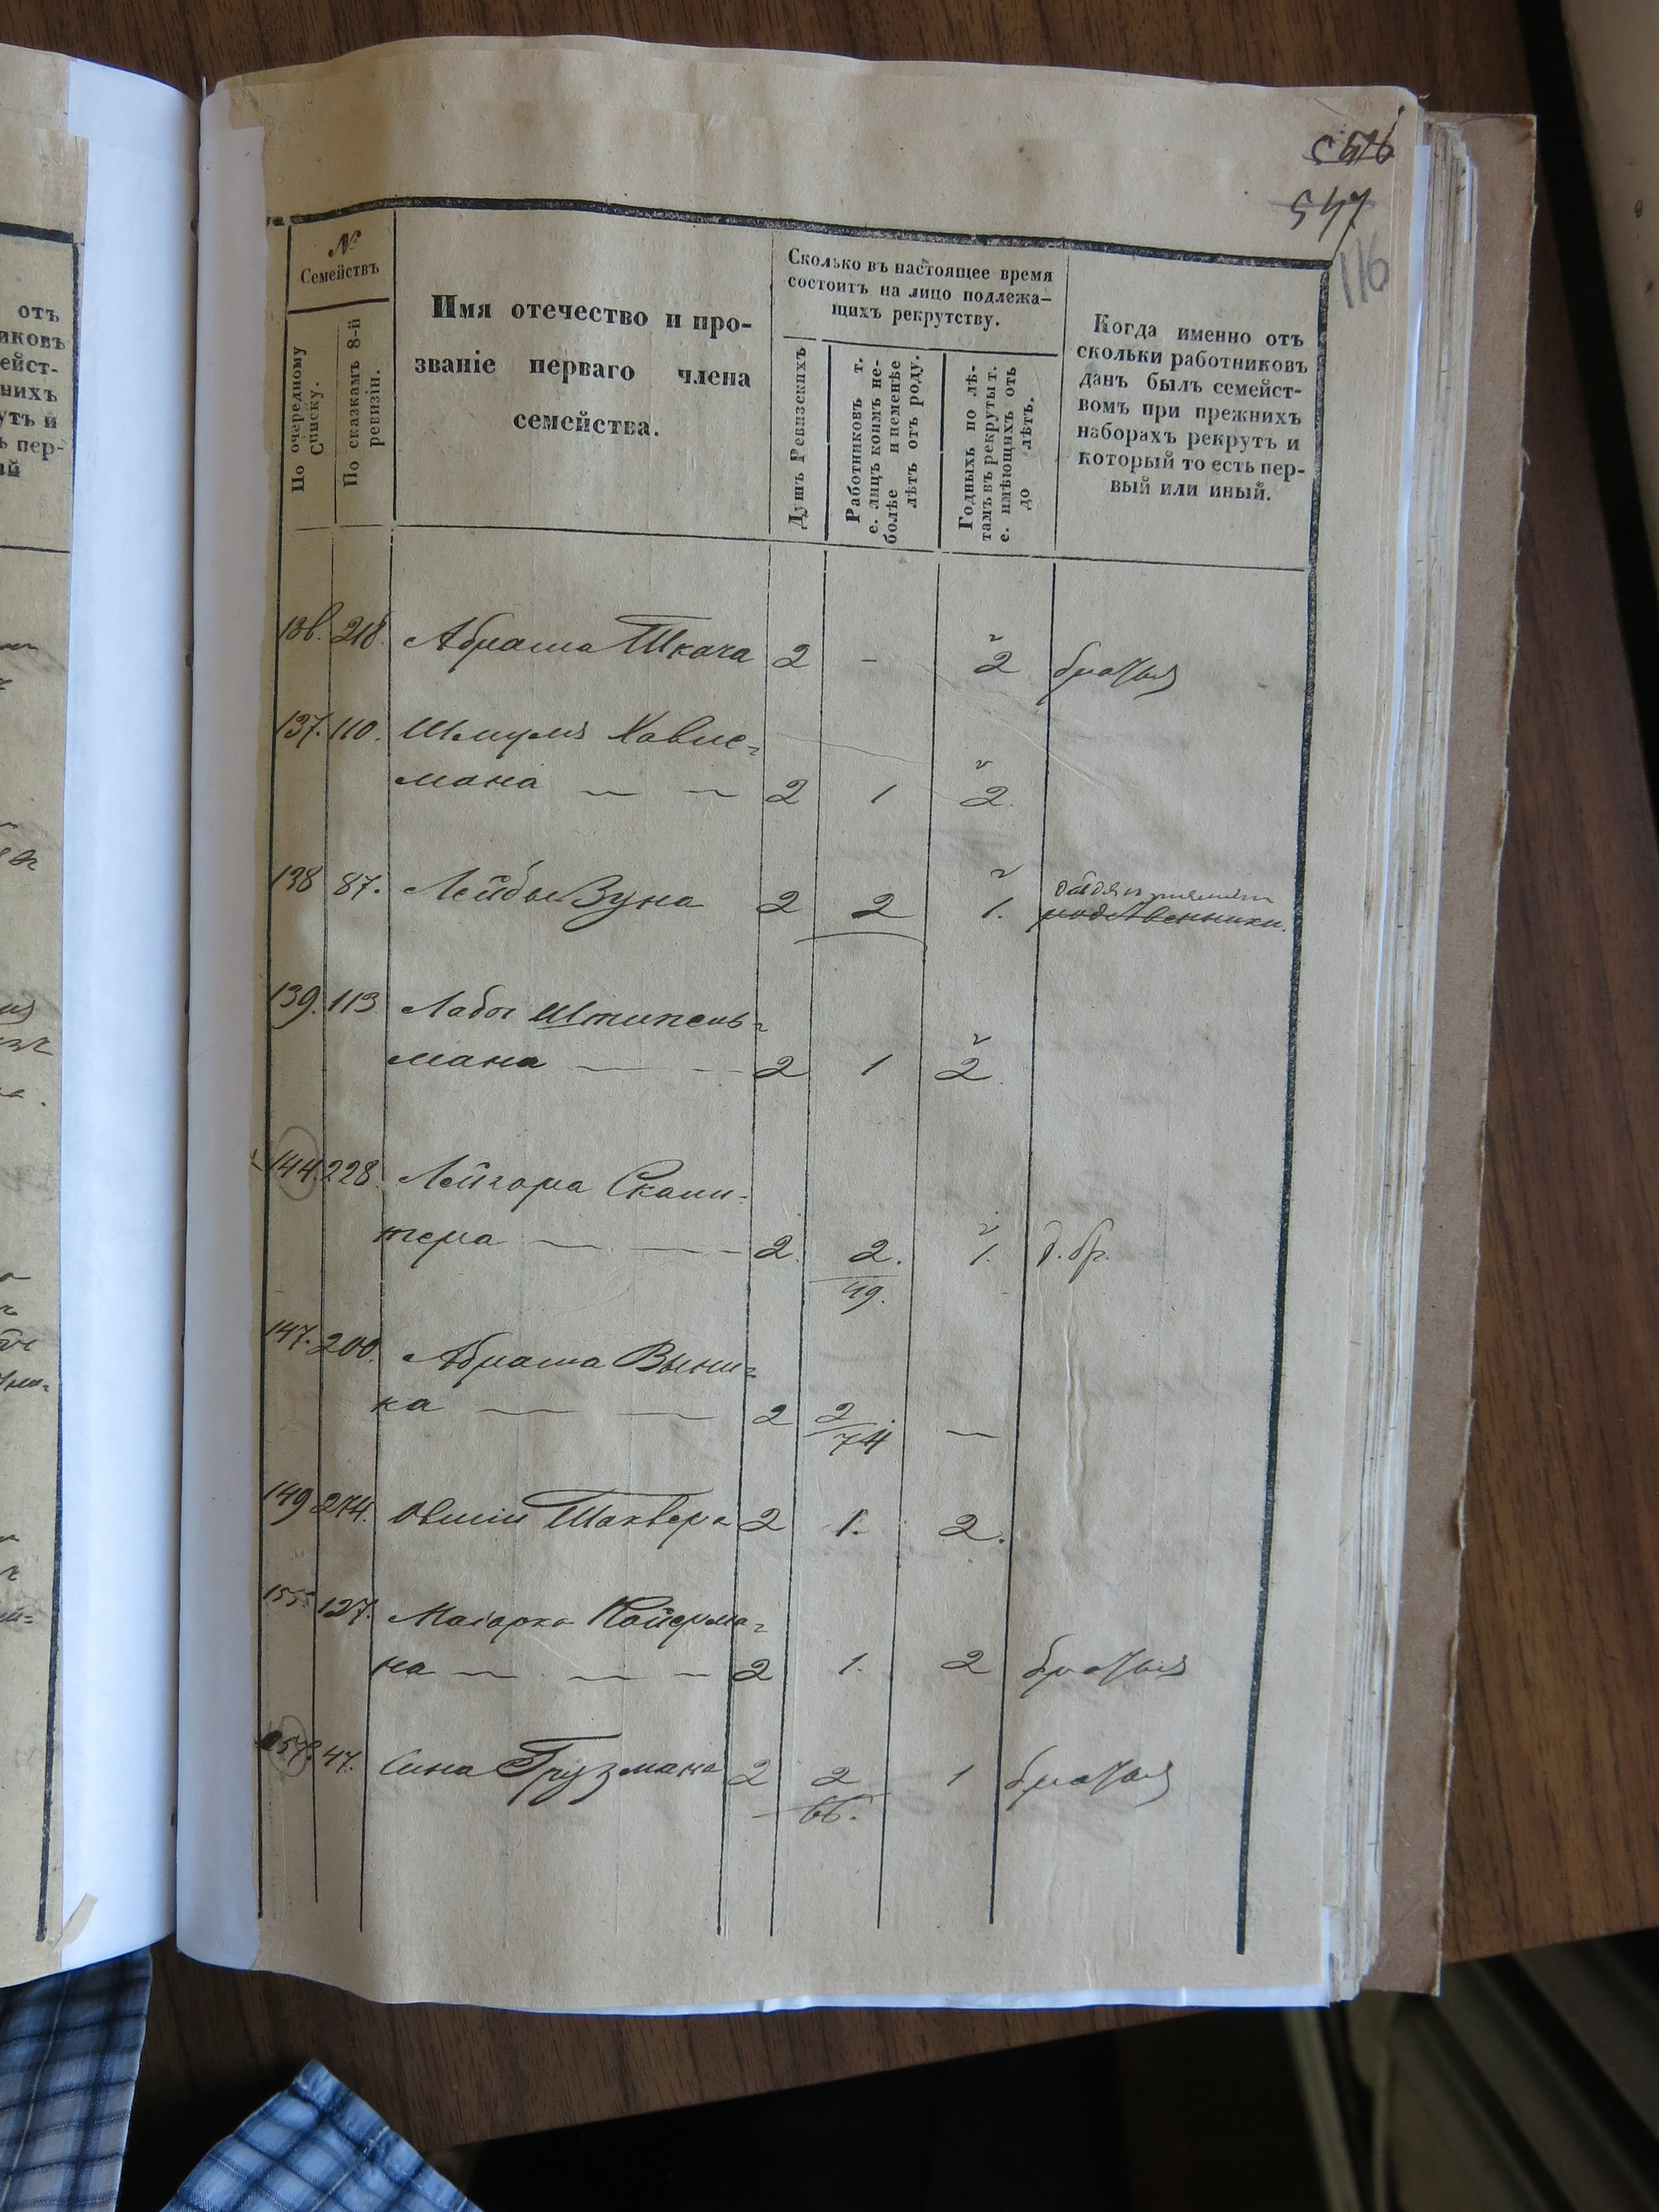 547
116
№
Семействъ
По очередному Списку.
По сказкамъ 8-й ревизіи.
Имя отечество и про-
званіе перваго члена
семейства.
Сколько въ настоящее время
состоитъ на лицо подлежа-
щихъ рекрутству.
Душъ Ревизскихъ
Работниковъ т.
е. лицъ коимъ не-
болѣе и неменѣе
лѣтъ отъ роду.
Годныхъ по лѣ-
тамъ въ рекруты т.
е. имѣющихъ отъ
до лѣтъ.
Когда именно отъ
скольки работниковъ
данъ былъ семейст-
вомъ при прежнихъ
наборахъ рекрутъ и
который то есть пер-
вый или иный.
136. 218. Абрама Ткача 2 - 2 братья
137. 110. Шмуля
мана — — 2 1 2.
138 87. Лейбы Зуна 2 2 1. родственники.
139. 113 Лабы Штипель-
мана — — 2 1 2.
144. 228. Лейзора
тера — — 2. 2. 1. д. бр.
49.
147. 200. Абрама Выни-
ка — — 2 2 —
74
149 274. Овшіи 2 1. 2.
155. 127. Маіорка Койерма-
на — — — 2 1. 2 братья
157. 47. Сина Грузмана 2 2 1 братья
66.
отъ
иковъ
ейст-
нихъ
утъ и
ь пер-
ый